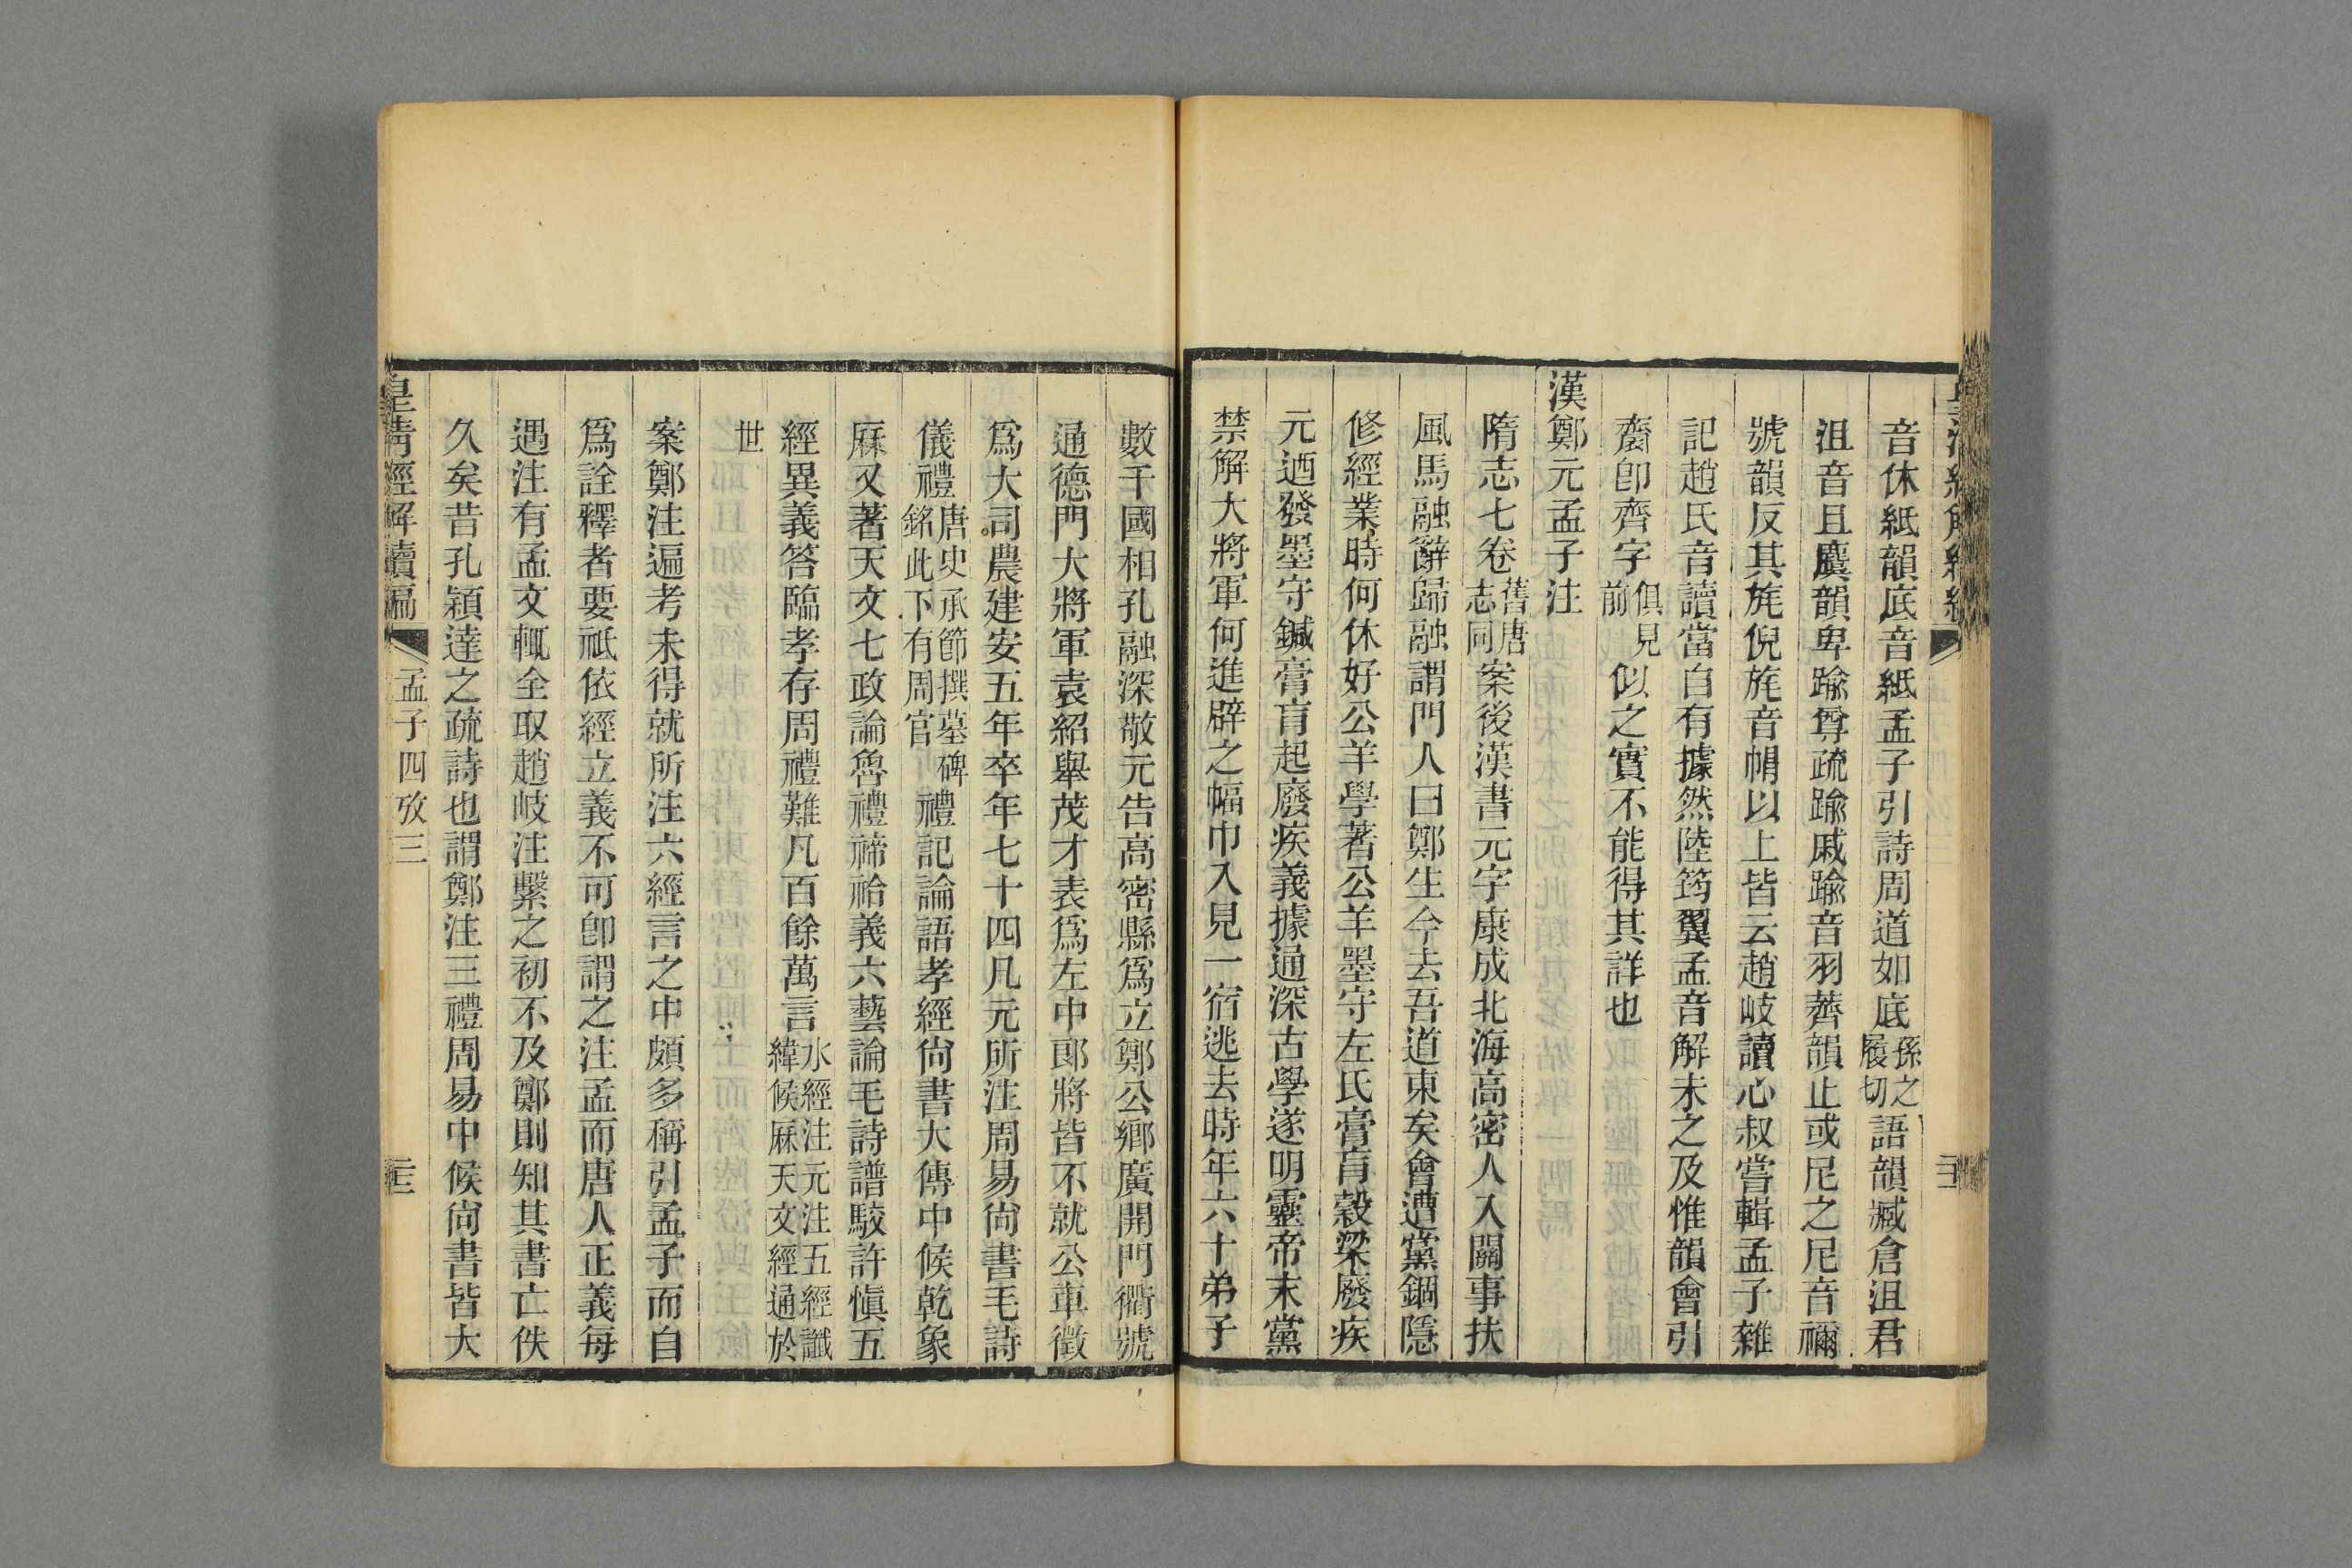 音休紙韻底音紙孟子引詩周道如底孫之履切語韻臧倉沮君
沮音且麌韻卑踰尊疏踰戚踰音羽薺韻止或尼之尼音禰
號韻反其旄倪旄音帽以上皆云趙岐讀心叔嘗輯孟子雜
記趙氏音讀當自有據然陸筠翼孟音解未之及惟韻會引
齌卽齊字俱見前似之實不能得其詳也
漢鄭元孟子注
隋志七卷舊唐志同案後漢書元字康成北海高密人入關事扶
風馬融辭歸融謂門人曰鄭生今去吾道東矣會遭黨錮隱
修經業時何休好公羊學著公羊墨守左氏膏肓穀梁廢疾
元迺發墨守鍼膏肓起廢疾義據通深古學遂明靈帝末黨
禁解大將軍何進辟之幅巾入見一宿逃去時年六十弟子
數千國相孔融深敬元告高密縣爲立鄭公鄉廣開門衢號
通德門大將軍袁紹舉茂才表爲左中郎將皆不就公車徵
爲大司農建安五年卒年七十四凡元所注周易尙書毛詩
儀禮唐史承節撰墓碑銘此下有周官禮記論語孝經尙書大傳中候乾象
厤又著天文七政論魯禮禘祫義六藝論毛詩譜駮許愼五
經異義答臨孝存周禮難凡百餘萬言水經注元注五經讖緯候厤天文經通於
世
案鄭注遍考未得就所注六經言之中頗多稱引孟子而自
爲詮釋者要祇依經立義不可卽謂之注孟而唐人正義每
遇注有孟文輒全取趙岐注繫之初不及鄭則知其書亡佚
久矣昔孔穎達之疏詩也謂鄭注三禮周易中候尙書皆大
皇清經解續編
孟子四攷三